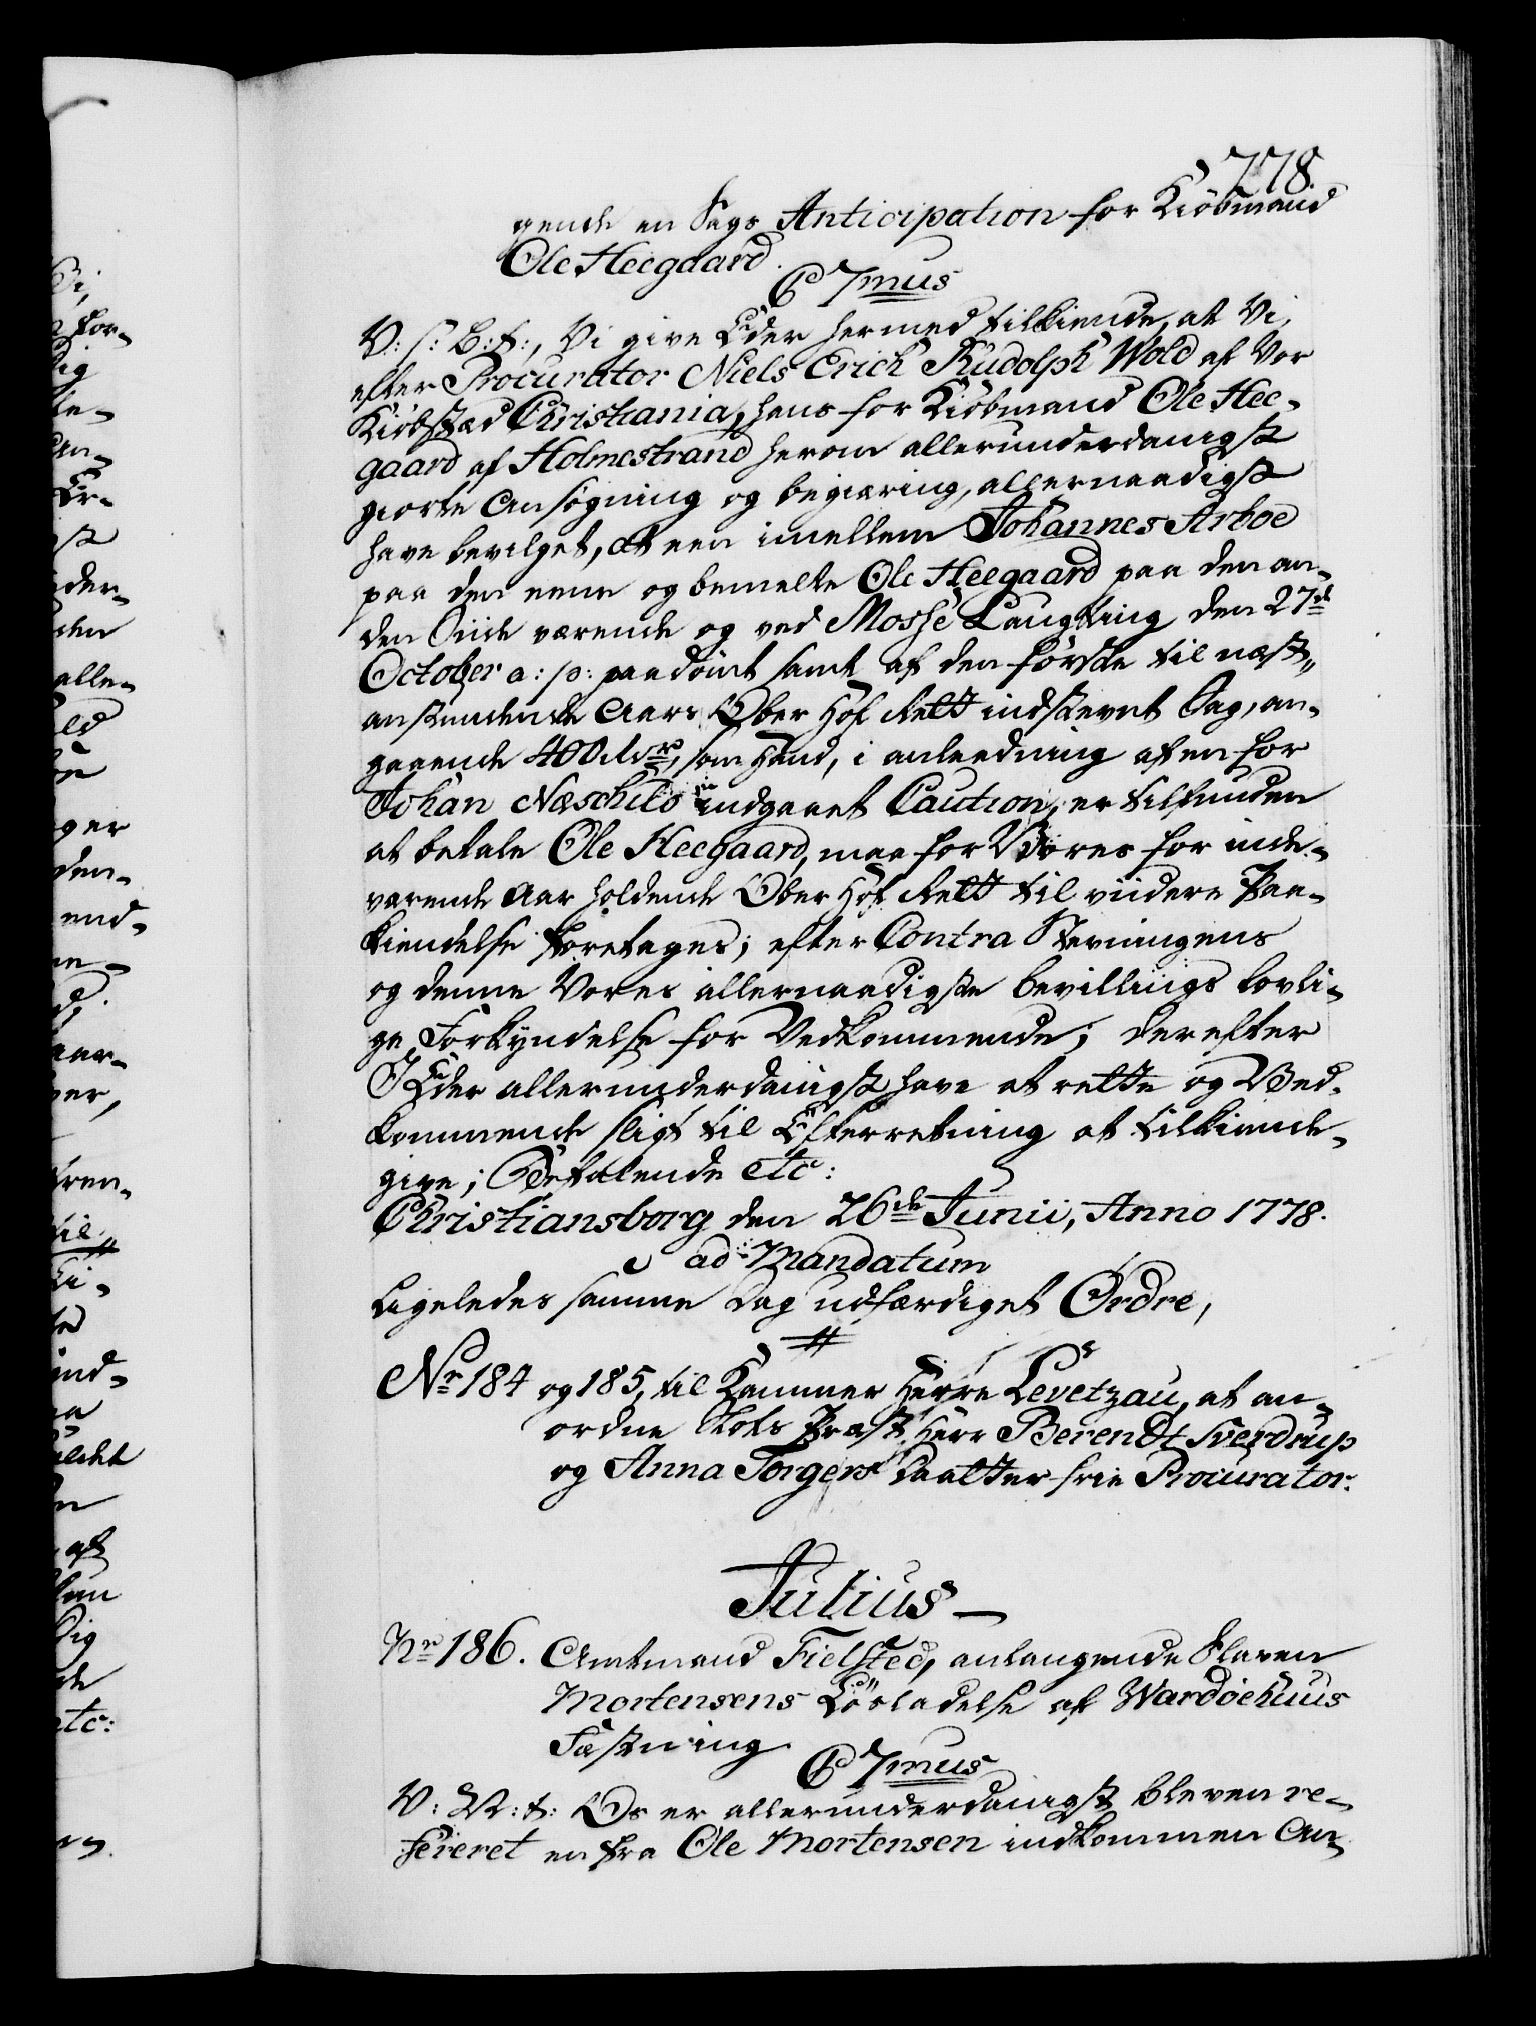 778.
gende en Sags Anticipation for Kiöbmand
Ole Heegaard.
C 7mus
V: s: B: t:, Vi give Eder hermed tilkiende, at Vi,
efter Procurator Niels Erich Rudolph Wold af Vor
Kiöbstæd Christiania, hans for Kiöbmand Ole Hee-
gaard af Holmestrand herom allerunderdanigst
giorte Ansøgning og begiæring, allernaadigst
have bevilget, at een imellem Johannes Arboe
paa den eene og bemelte Ole Heegaard paa den an-
den Siide værende og ved Mosse Laugting den 27de
October a: p: paadömt samt af den første til næst-
anstundende Aars Ober Hof Rett indstevnt Sag, an-
gaaende 400 rdr, som Hand, i anleedning af en for
Johan Næschilo indgaaet Caution, er tilfunden
at betale Ole Heegaard, maa for Vores for inde-
værende Aar holdende Ober Hof Rett til viidere Paa-
kiendelse foretages; efter Contra Stevningens
og denne Vores allernaadigste bevillings lovli-
ge Forkyndelse for Vedkommende; derefter
I Eder allerunderdanigst have at rette og Ved-
kommende sligt til Efterretning at tilkiende-
give; Befalende etc:
Christiansborg den 26de Junii, Anno 1778.
ad Mandatum
Ligeledes samme Dag udfærdiget Ordre,
Nr 184 og 185, til Kammer Herre Levetzau, at an-
ordne Sogne Præst Herr Berendt Sverdrup
og Anna Torgers Daatter frie Procurator.
Julius
Nr 186. Amtmand Fielsted, anlangende Slaven
Mortensens Lösladelse af Wardöehuus
Fæstning
C 7mus
V: V: t: Os er allerunderdanigst bleven re-
fereret en fra Ole Mortensen indkommen An-